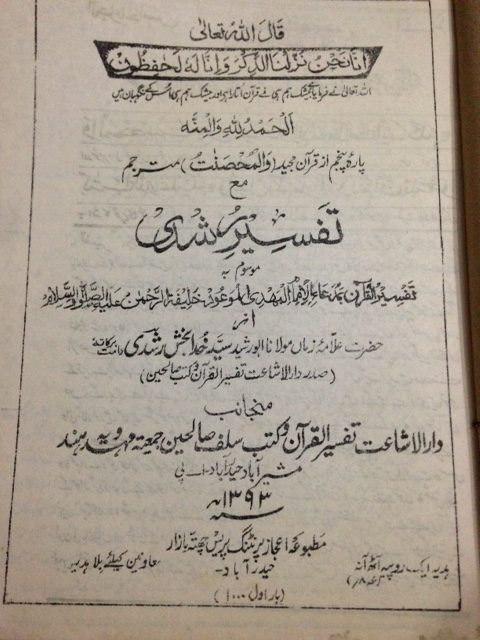 قال اللہ تعالیٰ
انا نحن نزلنا الذکر وانا لہ لحفظون
اللہ تعالیٰ نے فرمایا بیشک ہم ہی نے قرآن اتارا ہے اور بیشک ہم ہی اس کے نگہبان ہیں
الحمد للہ والمنہ
پارۂ پنجم از قرآن مجید (والمحصنت) مترجم
مع
تفسیر رشدی
موسوم بہ
تفسیر القرآن بمدعاء الامام المہدی الموعود خلیفۃ الرحمٰن علیہ الصلوٰۃ والسلام
از
حضرت علامۂ زماں مولانا ابو رشید سید خدا بخش رشدی
(صدر دار الاشاعت تفسیر القرآن و کتب صالحین)
منجانب
دار الاشاعت تفسیر القرآن و کتب سلف صالحین جمعیۃ مہدویہ ہند
مشیر آباد حیدرآباد۔ اے پی
۱۳۹۳ھ
سنہ
مطبوعہ اعجاز پرنٹنگ پریس چھتہ بازار
حیدرآباد۔
ہدیہ ایک روپیہ آٹھ آنہ
معاونین کیلئے بلا ہدیہ
(بار اول ۱۰۰۰)